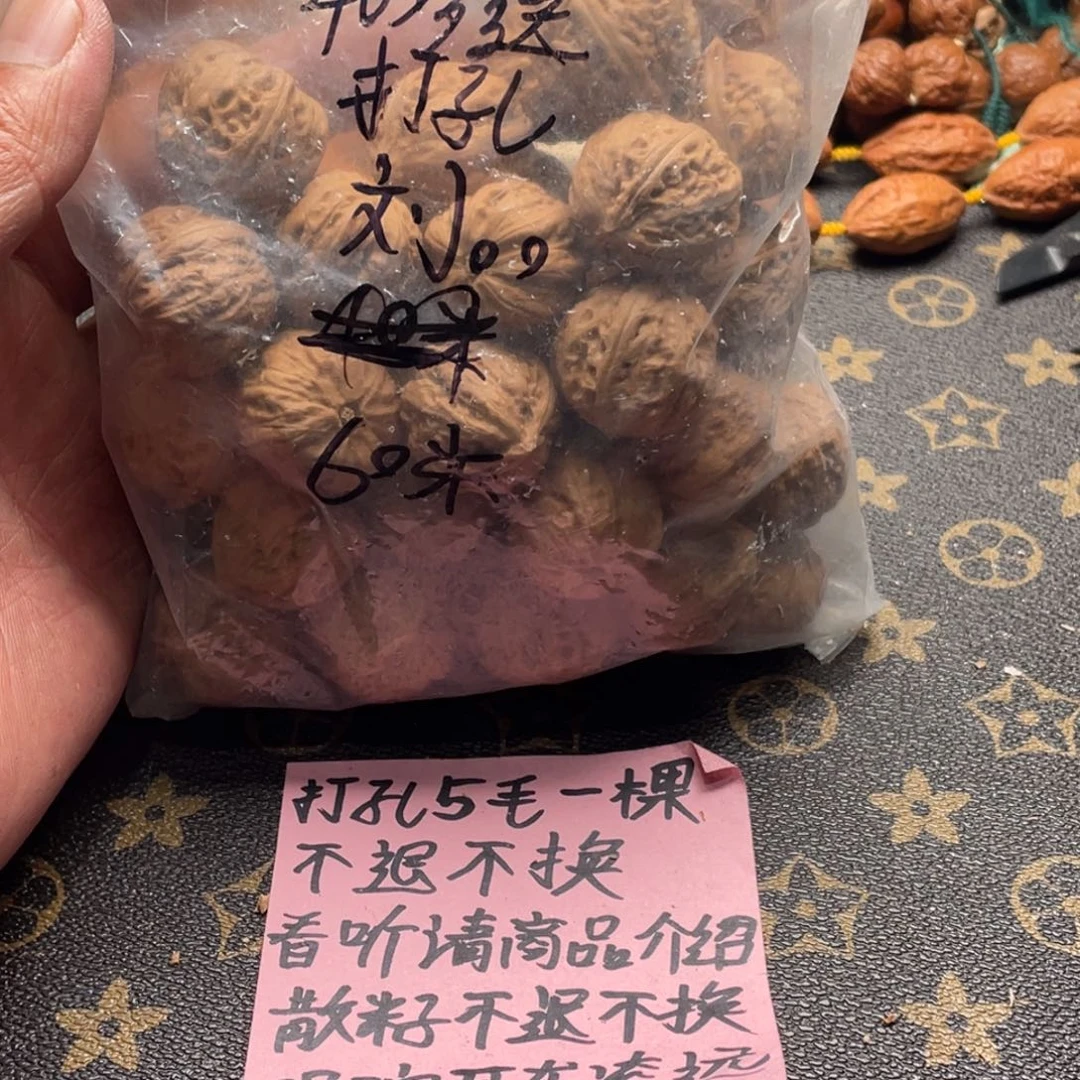 打孔
刘.00
40米
60米
打孔5毛一棵
不退不换
看听请商品介绍
散籽不退不换